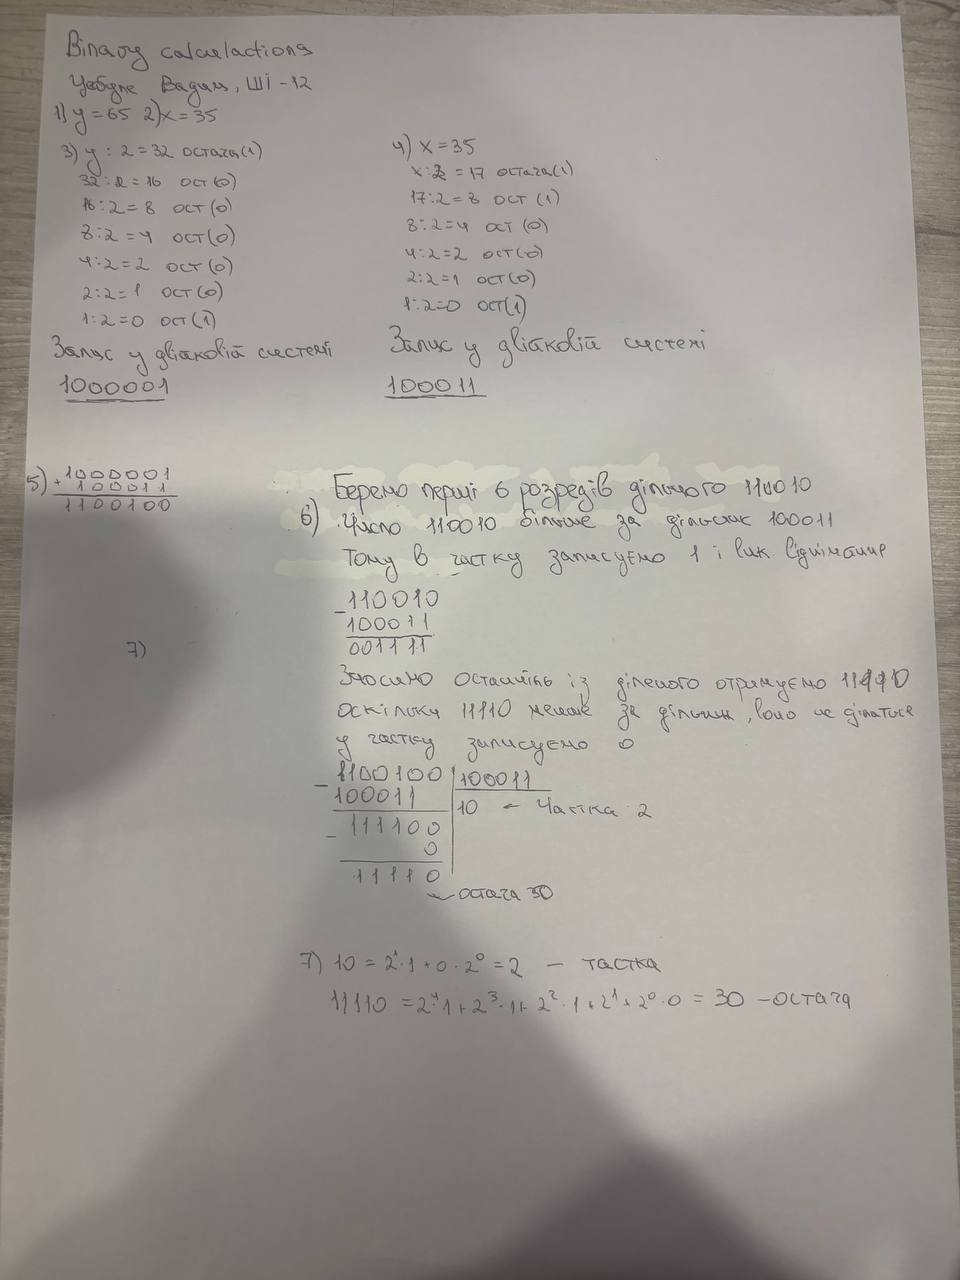 Binary calculactions
Чебуле Вадим, ШІ-12
1) y=65 2) x=35
3) y:2=32 остача(1)
32:2=16 ост(0)
16:2=8 ост(0)
8:2=4 ост(0)
4:2=2 ост(0)
2:2=1 ост(0)
1:2=0 ост(1)
Запис у двійковій системі
1000001
4) x=35
x:2=17 остача(1)
17:2=8 ост(1)
8:2=4 ост(0)
4:2=2 ост(0)
2:2=1 ост(0)
1:2=0 ост(1)
Запис у двійковій системі
100011
5) +1000001
100011
1100100
Беремо перші 6 розредів діленого 110010
6) Число 110010 більше за дільник 100011
Тому в частку записуємо 1 і вик. віднімання
-110010
100011
001111
7)
Зносимо останній із діленого отримуємо 11110
оскільки 11110 менше за дільник, воно не ділиться
у частку записуємо 0
-1100100 | 100011
100011 10 ← Частка 2
- 111100
0
11110
← остача 30
7) 10 = 2¹·1+0·2⁰=2 — тастка
11110 = 2⁴·1+2³·1+2²·1+2¹+2⁰·0 = 30 — остача